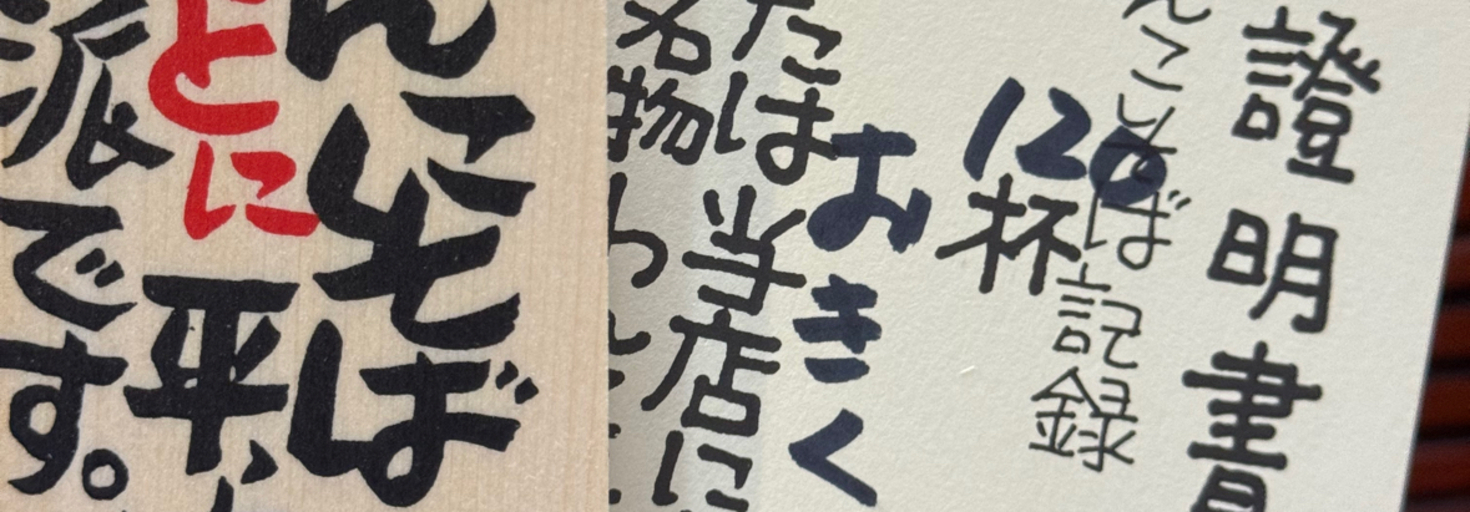 んこそば
とに平
派です。
證明書
んこそば記録
120杯
おきく
たは当店に
名物わん